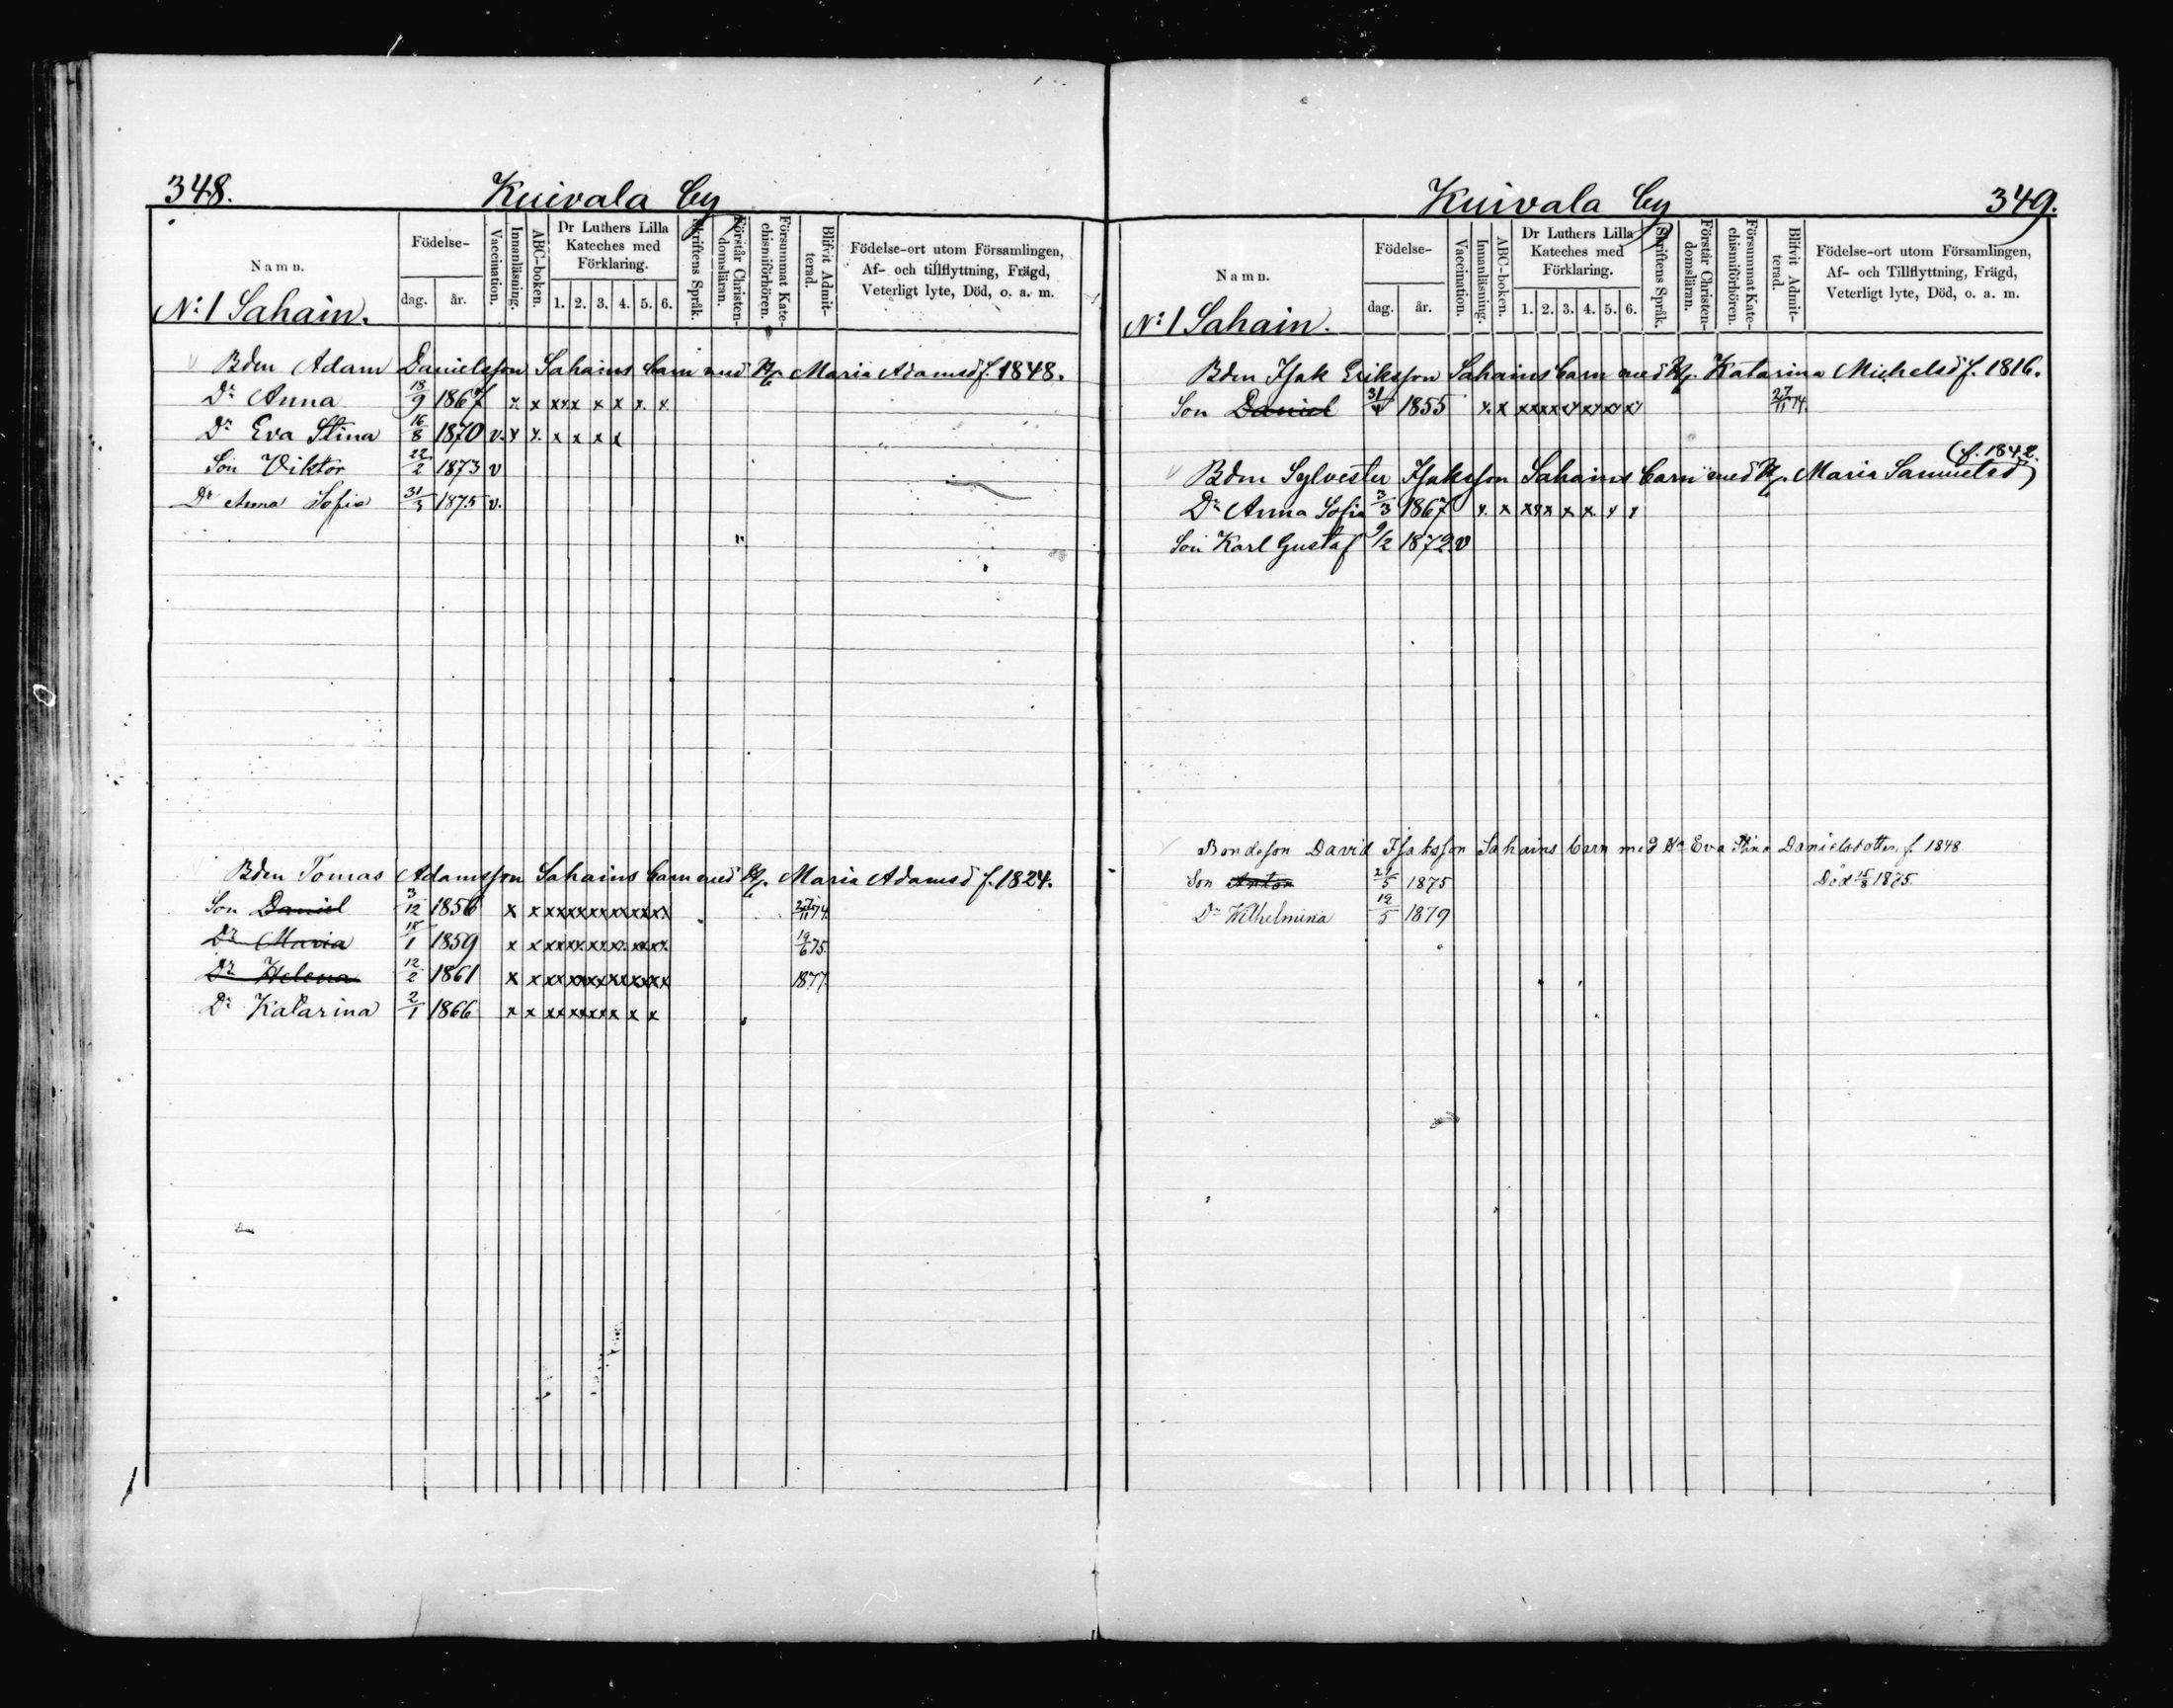 348.
Kuivala by
Namn.
Födelse-
dag.
år.
Vaccination.
Innanläsning.
ABC-boken.
Dr Luthers Lilla
Kateches med
Förklaring.
1. 2. 3. 4. 5. 6.
Skriftens Språk.
Förstår Christen-
domsläran.
Försummat Kate-
chismiförhören.
Blifvit Admit-
terad.
Födelse-ort utom Församlingen,
Af- och tillflyttning, Frägd,
Veterligt lyte, Död, o. a. m.
N:1 Sahain.
Bden Adam Danielsson Sahains barn med H. Maria Adamsd f. 1848.
Dr Anna 18/9 1867 x x xxx x x x. x
Dr Eva Stina 16/8 1870 v. x x. x x x x
Son Viktor 22/2 1873 v
Dr Anna Sofia 31/3 1875 v.
Bden Tomas Adamsson Sahains barn med H. Maria Adamsd f. 1824.
Son Daniel 3/12 1856 x x xxxxxxxxxxx 27/11 74.
Dr Maria 18/1 1859 x x xxxxxxxx. xxx. 19/6 75.
Dr Helena 12/2 1861 x x xxxxxxxxxxx 1877
Dr Katarina 2/1 1866 x x xxxxxxx x x
349.
Kuivala by
Namn.
Födelse-
dag.
år.
Vaccination.
Innanläsning.
ABC-boken.
Dr Luthers Lilla
Kateches med
Förklaring.
1. 2. 3. 4. 5. 6.
Skriftens Språk.
Förstår Christen-
domsläran.
Försummat Kate-
chismiförhören.
Blifvit Admit-
terad.
Födelse-ort utom Församlingen,
Af- och Tillflyttning, Frägd,
Veterligt lyte, Död, o. a. m.
N:1 Sahain.
Bden Isak Eriksson Sahains barn med H. Katarina Michelsd f. 1816.
Son Daniel 1855 x. x xxxxxxxxxxx 27/11 74.
(f. 1842.
Bden Sylvester Isaksson Sahains barn med H. Maria Samuelsd)
Dr Anna Sofia 3/3 1867 x. x xxx x x. x x
Son Karl Gustaf 9/2 1872. v
Bondeson David Isaksson Sahains barn med Hu Eva Stina Danielsdotter f 1848
Son Anton 21/5 1875 Död 15/8 1875.
Dr Wilhelmina 19/5 1879